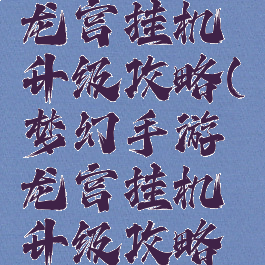 龙宫挂机
升级攻略(
梦幻手游
龙宫挂机
升级攻略